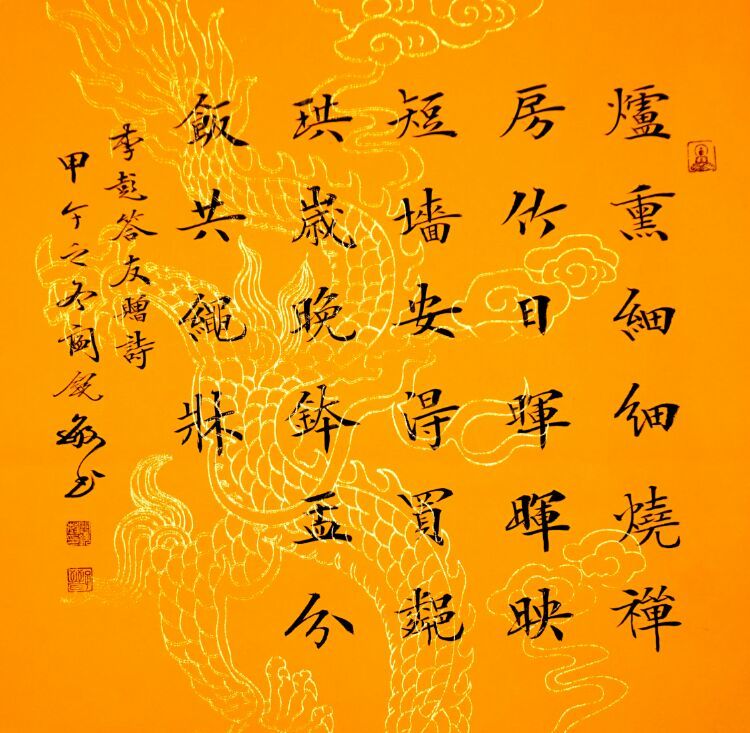 爐熏細細燒禪
房竹日暉暉映
短墻安得買鄰
珙歲晚鉢盂分
飯共繩牀
李彭答友贈詩
甲午之冬 銳敏书